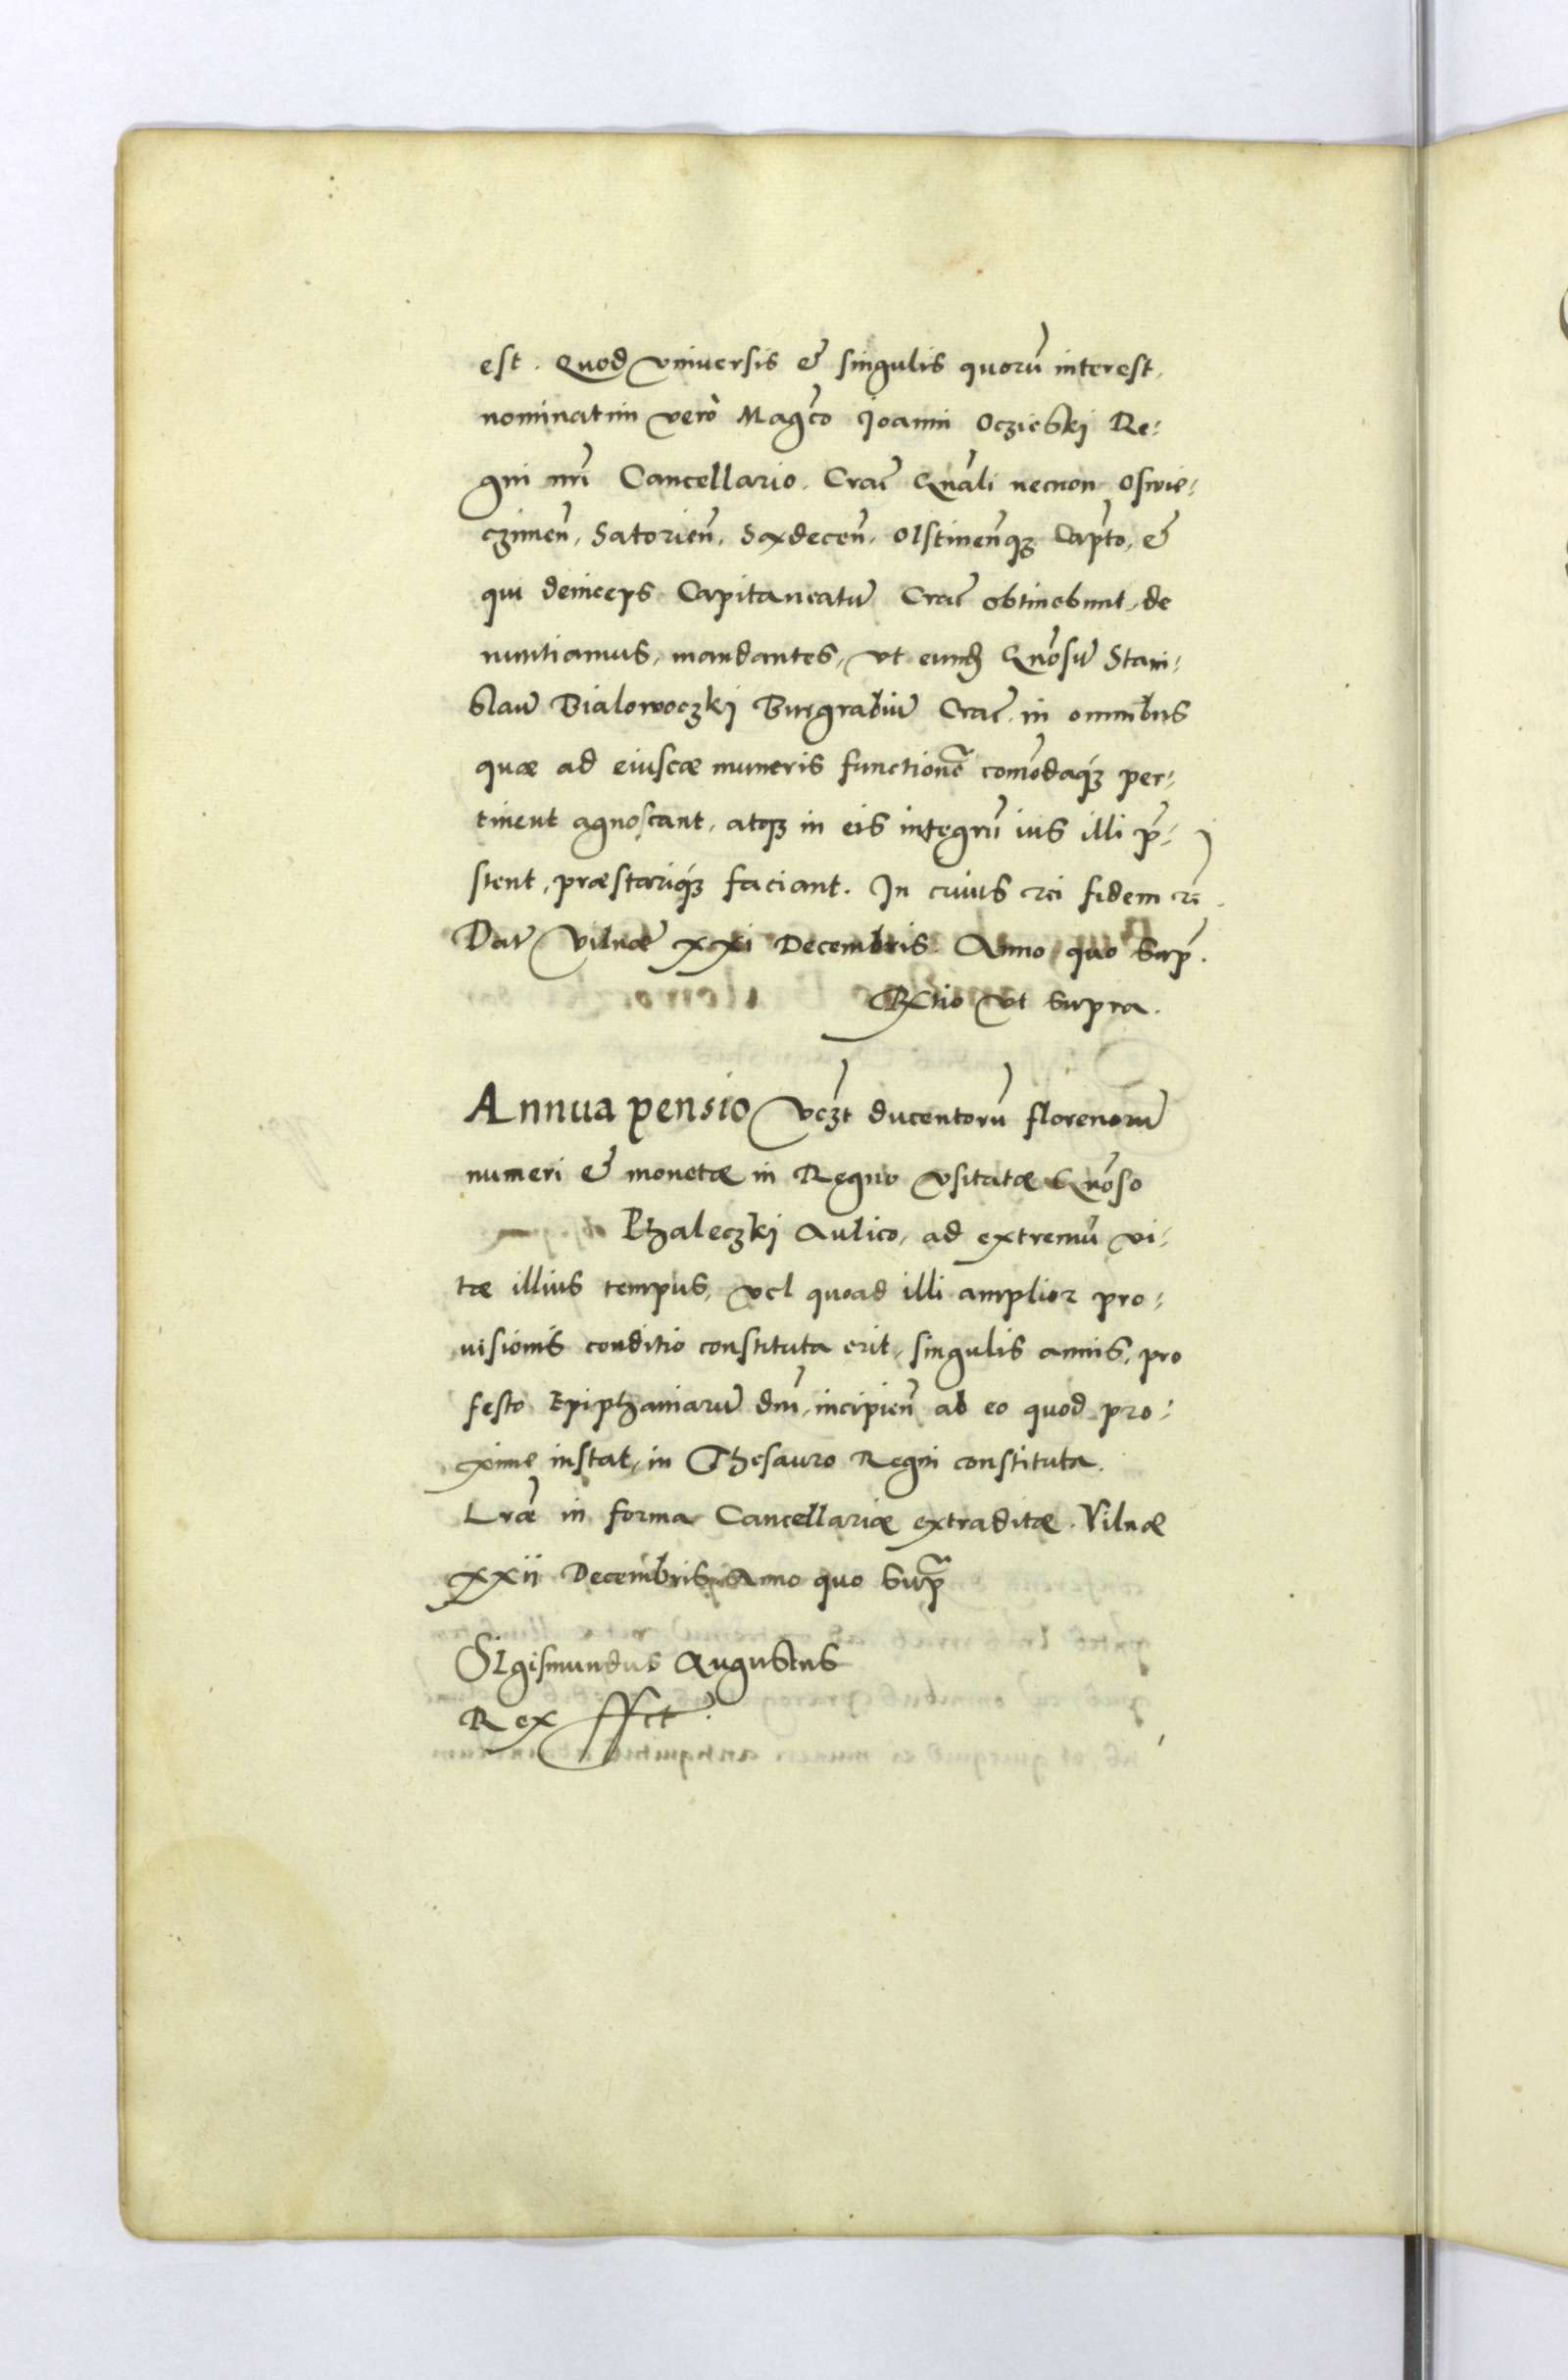 est. Quod vniuersis & singulis quorũ interest,
nominatim verò Magco Joanni Oczieski Re-
gni nri Cancellario. Crac̃ Gnãli necnon Oswie-
czimeñ, Satorieñ, Sandeceñ, Olstineñq₃ Capto, &
qui deinceps Capitaneatũ Crac̃ obtinebunt, de
nuntiamus, mandantes, vt eund Gnosũ Stani-
slaũ Bialowoczki Burgrabiũ Crac̃. in omnibus
quæ ad eiuscæ muneris functionẽ comõdaq₃ per-
tinent agnoscant, atq₃ in eis integrũ ius illi p̃-
stent, præstariq₃ faciant. In cuius rei fidem rc̃.
Dat̃ Vilnæ xxi Decembris. Anno quo sup̃.
Rctio vt supra.
Annua pensio vczt ducentorũ florenorũ
numeri & monetæ in Regno vsitatæ Gnoso
Phaleczki Aulico, ad extremũ vi-
tæ illius tempus, vel quoad illi amplior pro-
uisionis conditio constituta erit, singulis annis, pro
festo Epiphaniarũ dnĩ, incipieñ ab eo quod pro-
xime instat, in Thesauro Regni constituta.
Lræ in forma Cancellariæ extraditæ. Vilnæ
xxii Decembris Anno quo supᵃ
Sigismundus Augustus
Rex sst